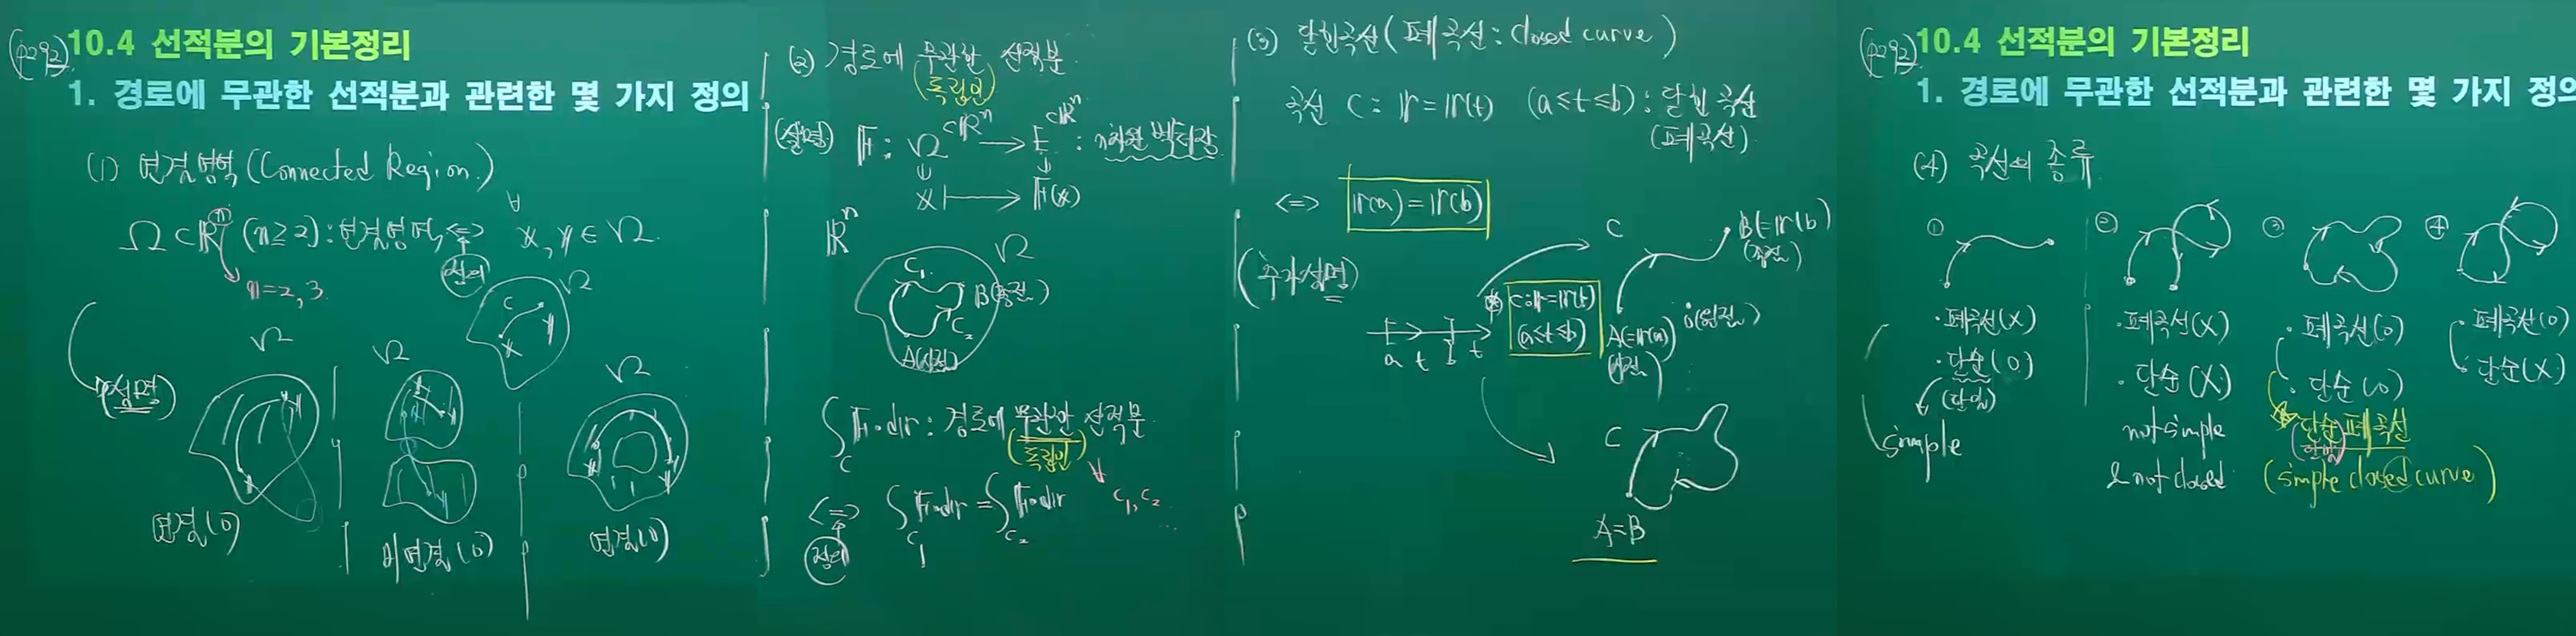 (p292) 10.4 선적분의 기본정리
1. 경로에 무관한 선적분과 관련한 몇 가지 정의
(1) 연결영역 (Connected Region.)
Ω ⊂ ℝⁿ (n≥2) : 연결영역 <=> ∀ x, y ∈ Ω
정의
n=2, 3.
C
x
y
Ω
(설명)
Ω
Ω
Ω
연결(O)
비연결(O)
연결(O)
(2) 경로에 무관한 선적분
(독립인)
(설명) F : Ω ⊂ℝⁿ → ⊂ℝⁿ : n차원 벡터장
x ↦ F(x)
ℝⁿ
Ω
C₁
B(종점)
C₂
A(시점)
∫_C F·dr : 경로에 무관한 선적분
(독립인)
∀ C₁, C₂
<=> ∫_C₁ F·dr = ∫_C₂ F·dr
정의
(3) 닫힌곡선 (폐곡선 : closed curve)
곡선 C : r = r(t) (a≤t≤b) : 닫힌 곡선
(폐곡선)
<=> r(a) = r(b)
(추가설명)
C
B(=r(b)
(종점)
C : r=r(t)
(a≤t≤b)
A(=r(a))
(시점)
0(원점)
a t b t
C
A=B
(p292) 10.4 선적분의 기본정리
1. 경로에 무관한 선적분과 관련한 몇 가지 정의
(4) 곡선의 종류
① ② ③ ④
·폐곡선(X)
·단순(O)
(단일)
simple
·폐곡선(X)
·단순(X)
not simple
& not closed
·폐곡선(O)
·단순(O)
단순폐곡선
(단일)
(simple closed curve)
·폐곡선(O)
·단순(X)